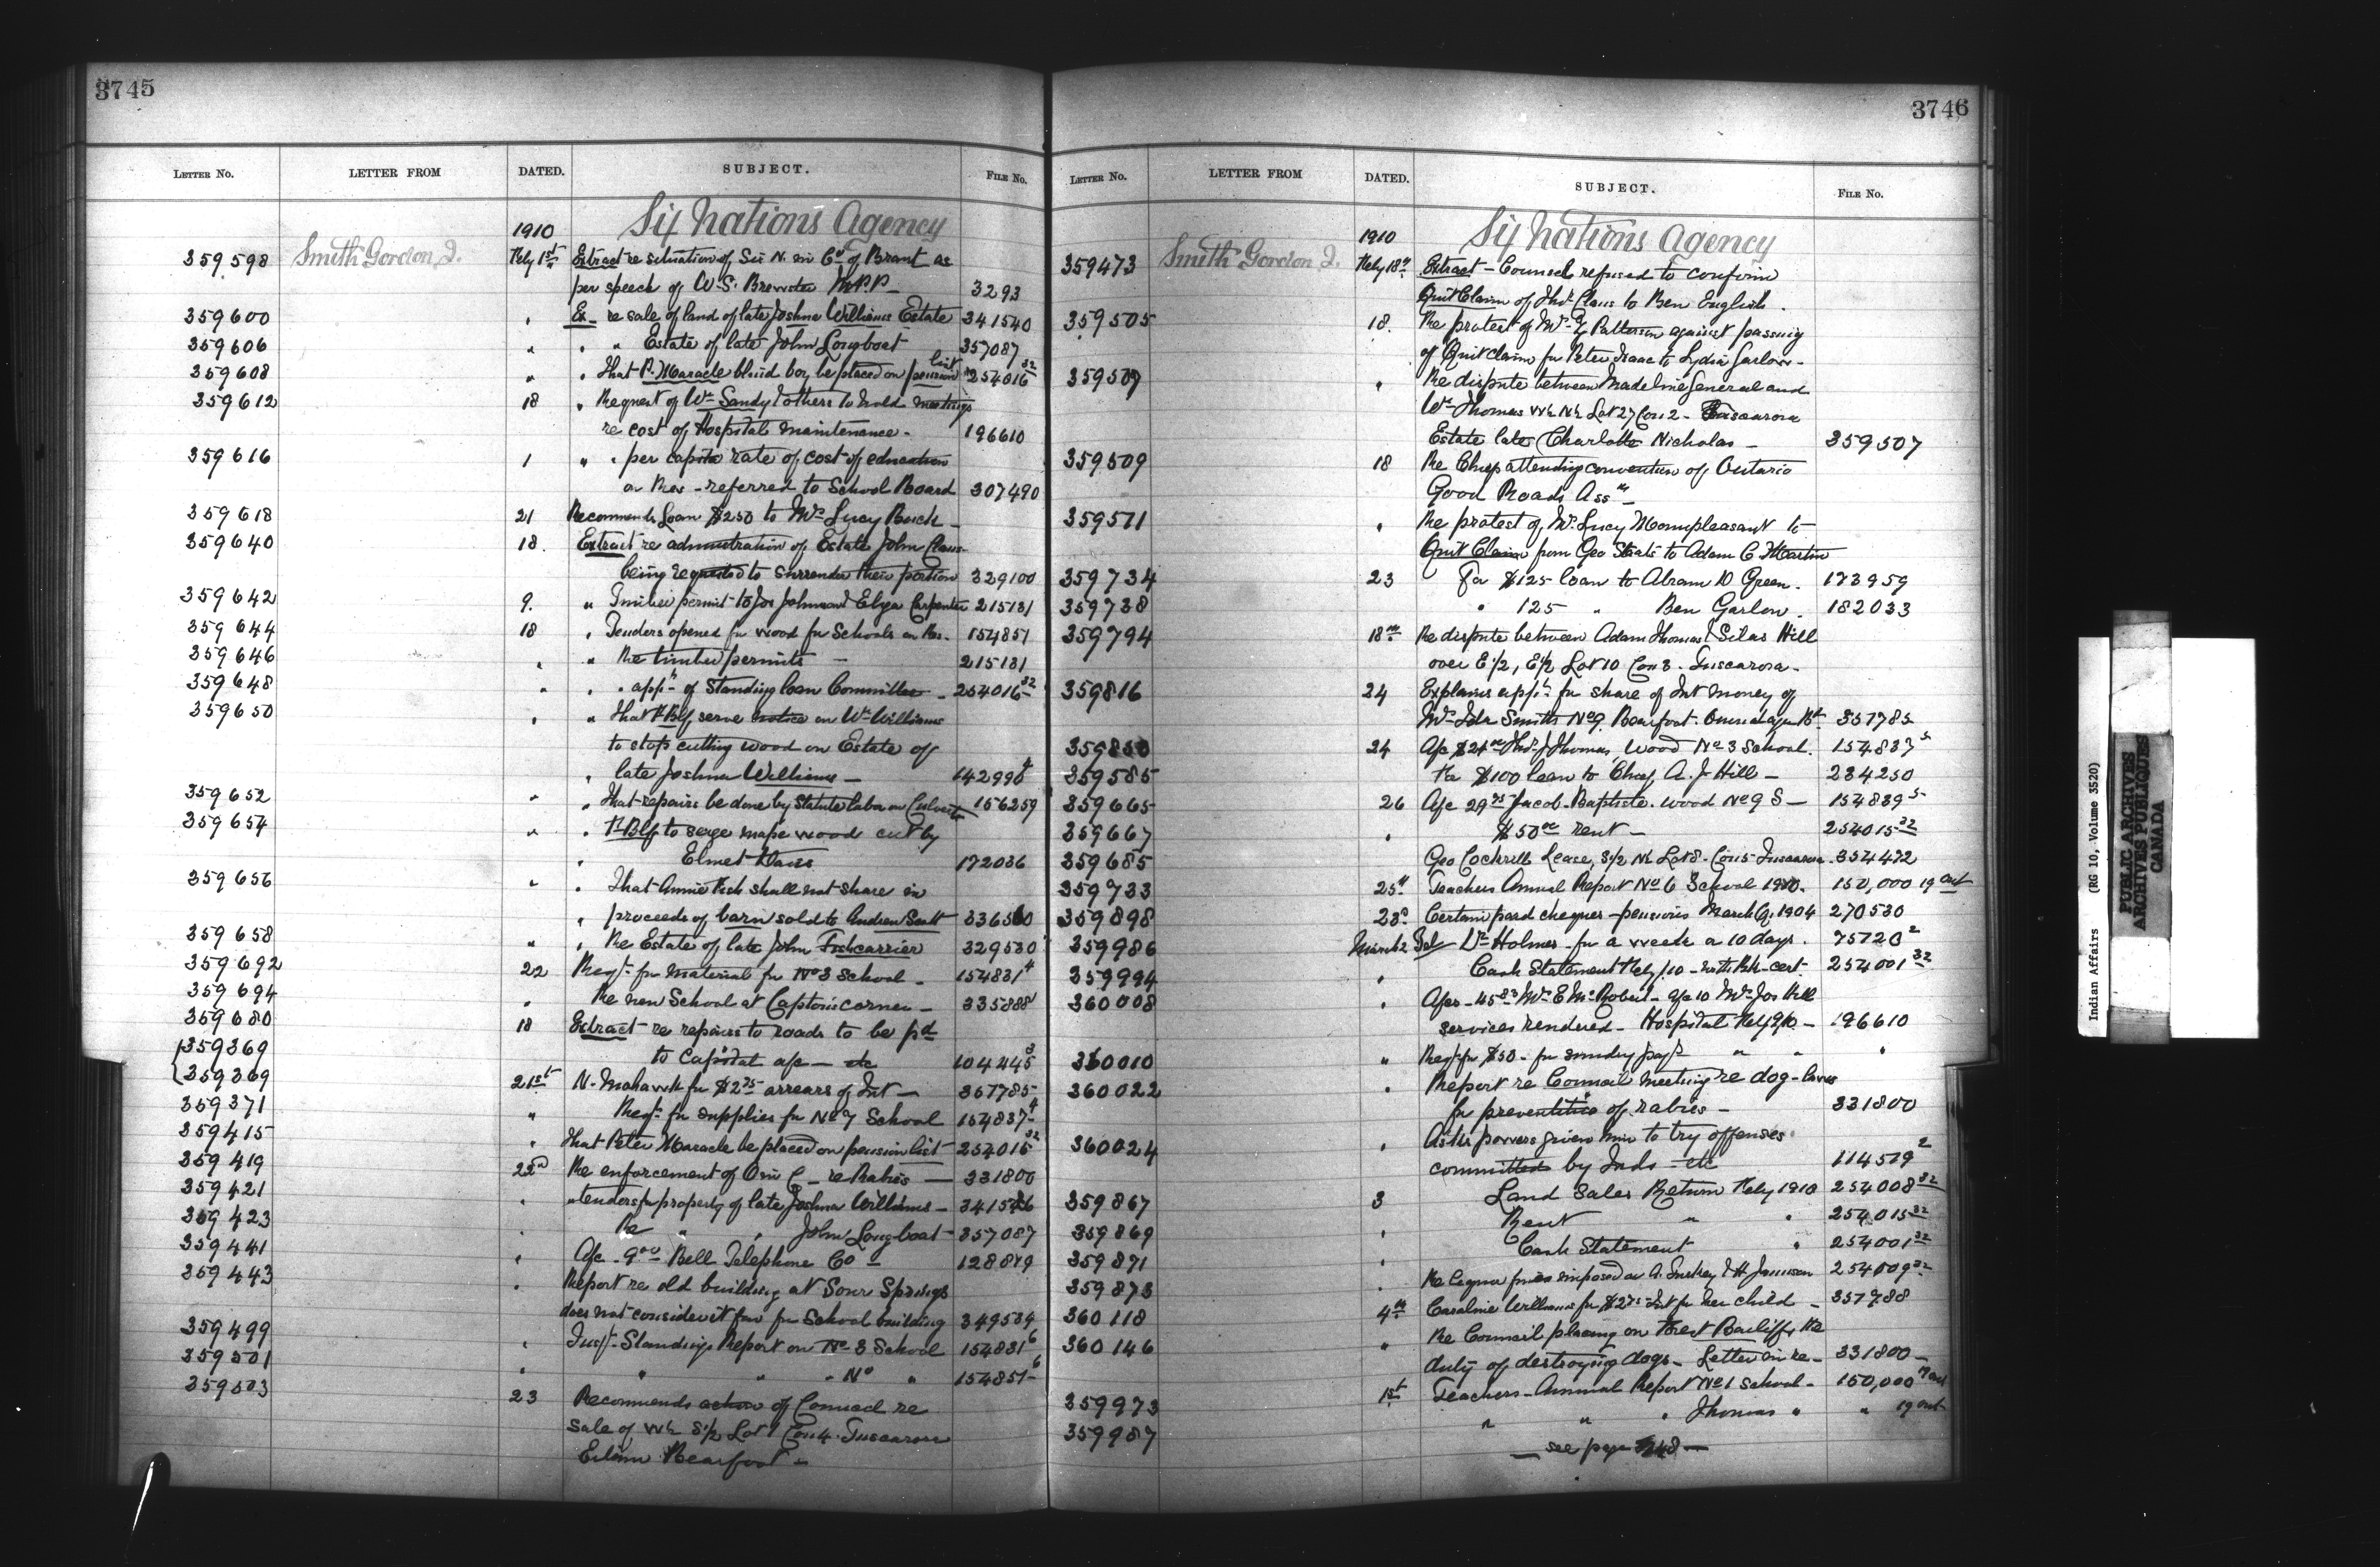 3745
LETTER No. LETTER FROM DATED. SUBJECT. FILE No.
1910 Six Nations Agency
359598 Smith Gordon J. Feby 1st Extract re situation of Six N. in Co of Brant as
per speech of W.S. Brewster M.P.P. - 3293
359600 " Ex - re sale of land of late Joshua Williams Estate 341540
359606 " " " Estate of late John Longboat 357087
359608 " " That P. Maracle blind boy be placed on pension list 254016 32
359612 18 " Request of Wm Sandy & others to hold meetings
re cost of Hospital maintenance - 196610
359616 1 " " per capita rate of cost of education
on Res - referred to School Board 307490
359618 21 Recommends Loan $250 to Mrs Lucy Buck -
359640 18. Extract re administration of Estate John Claus
being requested to surrender their portion 329100
359642 9. " Timber permit to Jos Johnson & Eliza Carpenter 215131
359644 18 " Tenders opened for wood for Schools on Res. 154851
359646 " " Re timber permits - 215131
359648 " " appt of Standing loan Committee - 254016 32
359650 " " That Blf serve notice on Wm Williams
to stop cutting wood on Estate of
" late Joshua Williams - 142996 4
359652 " " That repairs be done by Statute labor on Culvert 156259
359654 " " Blf to serge maple wood cut by
" Elmer Davis 172036
359656 " " That Annie Fish shall not share in
" proceeds of barn sold to Andrew Scott 336560
359658 " " Re Estate of late John Fishcarrier 329530
359692 22 Reqt for material for No 3 School - 154831 4
359694 " Re new School at Captons corner - 335888
359680 18 Extract re repairs to roads to be pd
359369 to Capital a/c - etc 104244 3
359369 21st N. Mohawk for $2 75 arrears of Int - 357785
359371 " Reqt for supplies for No 7 School 154837 4
359415 " That Peter Maracle be placed on pension list 254016 32
359419 22d Re enforcement of O in C - re Rabies - 331800
359421 " " tenders for property of late Joshua Williams - 341546
359423 " Re " " John Longboat - 357087
359441 " A/c - 9 00 Bell Telephone Co - 128849
359443 " Report re old building at Sour Springs
does not consider it fair for School building 349534
359499 " Inspt Standings Report on No 3 School 154831 6
359501 " " " " No " 154851 6
359503 23 Recommends action of Council re
sale of S 1/2 Lot 1 Con 4. Tuscarora
Bearfoot -
3746
LETTER No. LETTER FROM DATED. SUBJECT. FILE No.
1910 Six Nations Agency
359473 Smith Gordon J. Feby 18th Extract - Council refused to confirm
Quit Claim of Thos Claus to Ben English.
359505 18. Re protest of Mrs Patterson against passing
of Quit claim for Peter Isaac to Lydia Garlow -
359507 " Re dispute between Madeline General and
Wm Thomas Lot 27 Con 2 - Tuscarora
Estate late Charlotte Nicholas - 359507
359509 18 Re Chiefs attending convention of Ontario
Good Roads Assn -
359571 " Re protest of Mrs Lucy Mountpleasant to
Quit Claim from Geo Staats to Adam C Martin
359734 23 For $125 loan to Abram D Green. 173959
359738 " 125 " Ben Garlow. 182033
359794 18th Re dispute between Adam Thomas & Silas Hill
over E 1/2, E 1/2 Lot 10 Con 3. Tuscarora -
359816 24 Explains appn for share of Int money of
Mrs Ida Smith No 9. Bearfoot. 357785
359850 24 A/c $21 00 Thos J Thomas, Wood No 3 School. 154837 5
359585 Re $100 loan to Chief A. J Hill - 234250
359665 26 A/c 29 75 Jacob Baptiste. wood No 9 S - 154839 5
359667 " $50 00 rent - 254015 32
359685 Geo Cockrill Lease, S 1/2 N 1/2 Lot 8. Con 5 Tuscarora. 354472
359733 25th Teachers Annual Report No 6 School 1910. 150,000 19 Ont
359898 23d Certain paid cheques - pensions March Q, 1904 270530
359986 March 2 Tel Dr Holmes for a week or 10 days. 75720 2
359994 " Cash Statement Feby /10 - with Bk - cert. 254001 32
360008 " A/cs - 45 83 Mrs E McRobert - a/c 10 Mrs Jos Hill
services rendered - Hospital Feby 9/10 - 196610
360010 " Reqt for $50 - for sundry payts " " "
360022 " Report re Council meeting re dog - laws
for preventitive of rabies - 331800
360024 " Asks powers given him to try offenses
committed by Inds - etc 114519 2
359867 3 Land Sales Return Feby 1910 254008 32
359869 " Rent " " 254015 32
359871 " Cash Statement " 254001 32
359873 " Re liquor fines imposed on A. & H Jamieson 254009 32
360118 4th Caroline Williams for $2 75 Int for her child - 357788
360146 " Re Council placing on Forest Bailiffs the
duty of destroying dogs - Letter on re - 331800 -
359973 1st Teachers - Annual Report No 1 School - 150,000 19 Ont
359987 " " " Thomas " " 19 Ont
- see page 3748 -
Indian Affairs (RG 10, Volume 3520)
PUBLIC ARCHIVES
ARCHIVES PUBLIQUES
CANADA